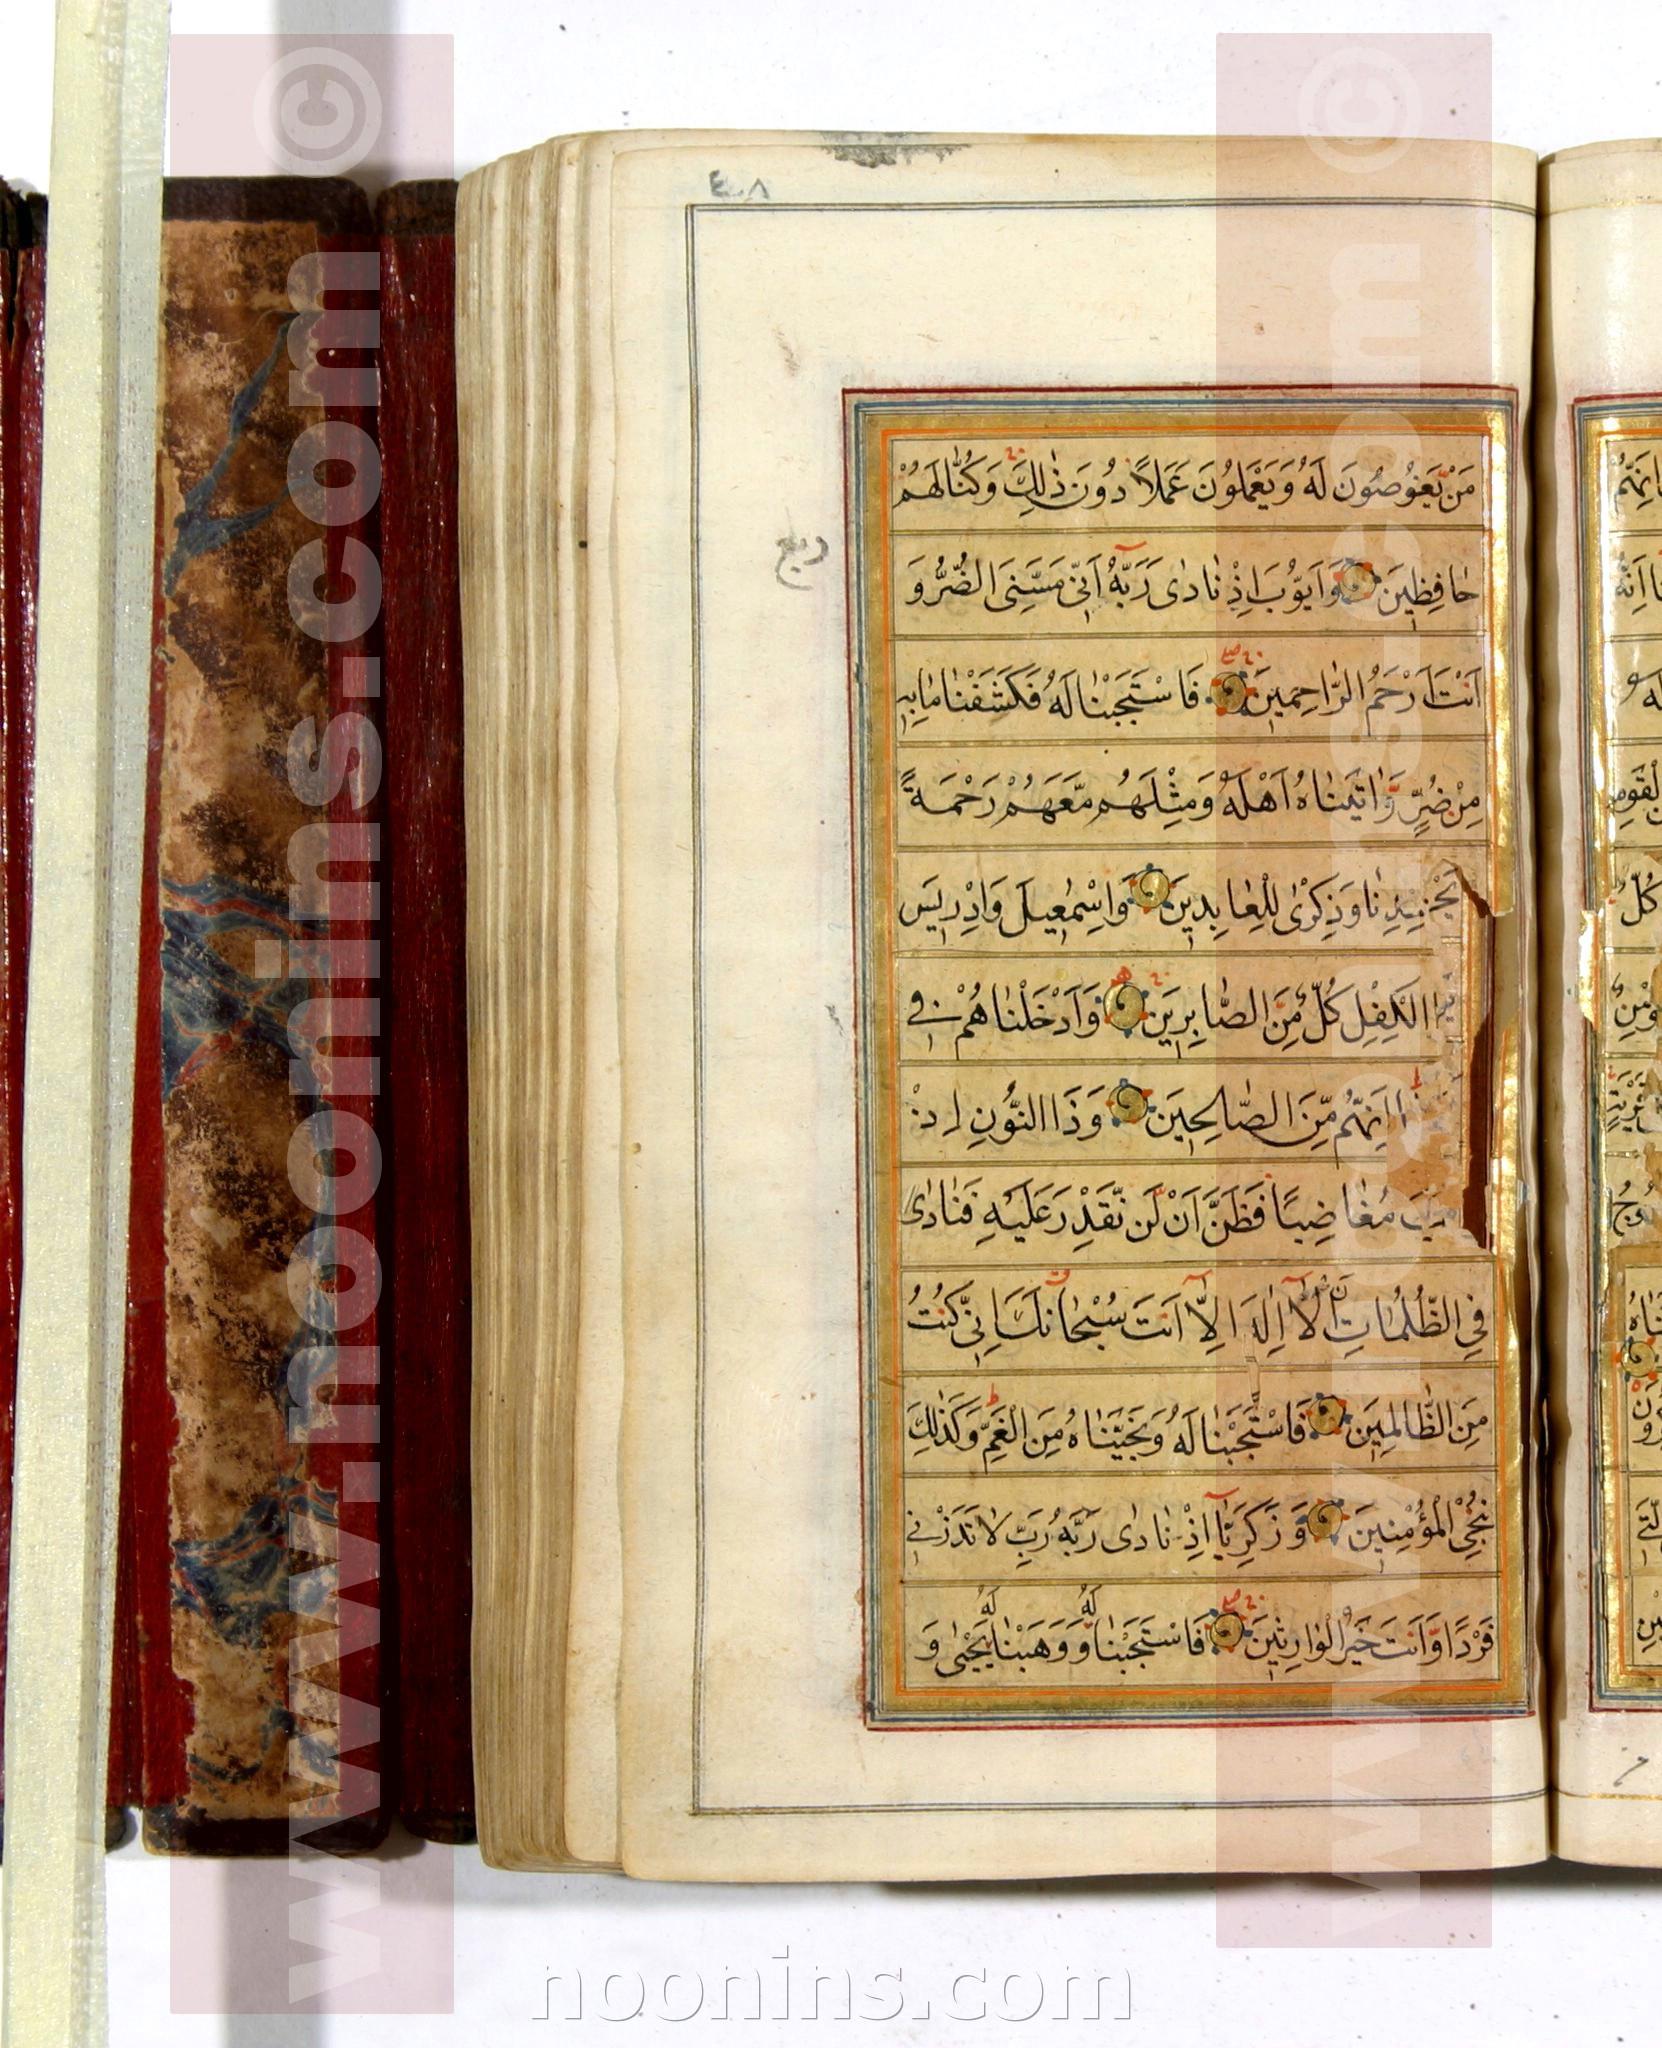 ٤٠٨
مَنْ يَغُوصُونَ لَهُ وَيَعْمَلُونَ عَمَلاً دُونَ ذٰلِكَ وَكُنّٰا لَهُمْ
حٰافِظِينَ وَاَيُّوبَ اِذْ نٰادٰى رَبَّهُ اَنِّى مَسَّنِىَ الضُّرُّ وَ
ربع
اَنْتَ اَرْحَمُ الرّٰاحِمِينَ فَاسْتَجَبْنٰا لَهُ فَكَشَفْنٰا مٰا بِهِ
مِنْ ضُرٍّ وَّاٰتَيْنٰاهُ اَهْلَهُ وَمِثْلَهُمْ مَّعَهُمْ رَحْمَةً
عِنْدِنٰا وَذِكْرٰى لِلْعٰابِدِينَ وَاِسْمٰعِيلَ وَاِدْرِيسَ
الْكِفْلِ كُلٌّ مِّنَ الصّٰابِرِينَ وَاَدْخَلْنٰاهُمْ فِى
اِنَّهُمْ مِّنَ الصّٰالِحِينَ وَذَا النُّونِ اِذْ
مُغٰاضِبًا فَظَنَّ اَنْ لَّنْ نَّقْدِرَ عَلَيْهِ فَنٰادٰى
فِى الظُّلُمٰاتِ اَنْ لٰا اِلٰهَ اِلّٰا اَنْتَ سُبْحٰانَكَ اِنِّى كُنْتُ
مِنَ الظّٰالِمِينَ فَاسْتَجَبْنٰا لَهُ وَنَجَّيْنٰاهُ مِنَ الْغَمِّ وَكَذٰلِكَ
نُنْجِى الْمُؤْمِنِينَ وَزَكَرِيّٰا اِذْ نٰادٰى رَبَّهُ رَبِّ لٰا تَذَرْنِى
فَرْدًا وَّاَنْتَ خَيْرُ الْوٰارِثِينَ فَاسْتَجَبْنٰا لَهُ وَوَهَبْنٰا لَهُ يَحْيٰى وَ
www.noonins.com ©
www.noonins.com ©
noonins.com